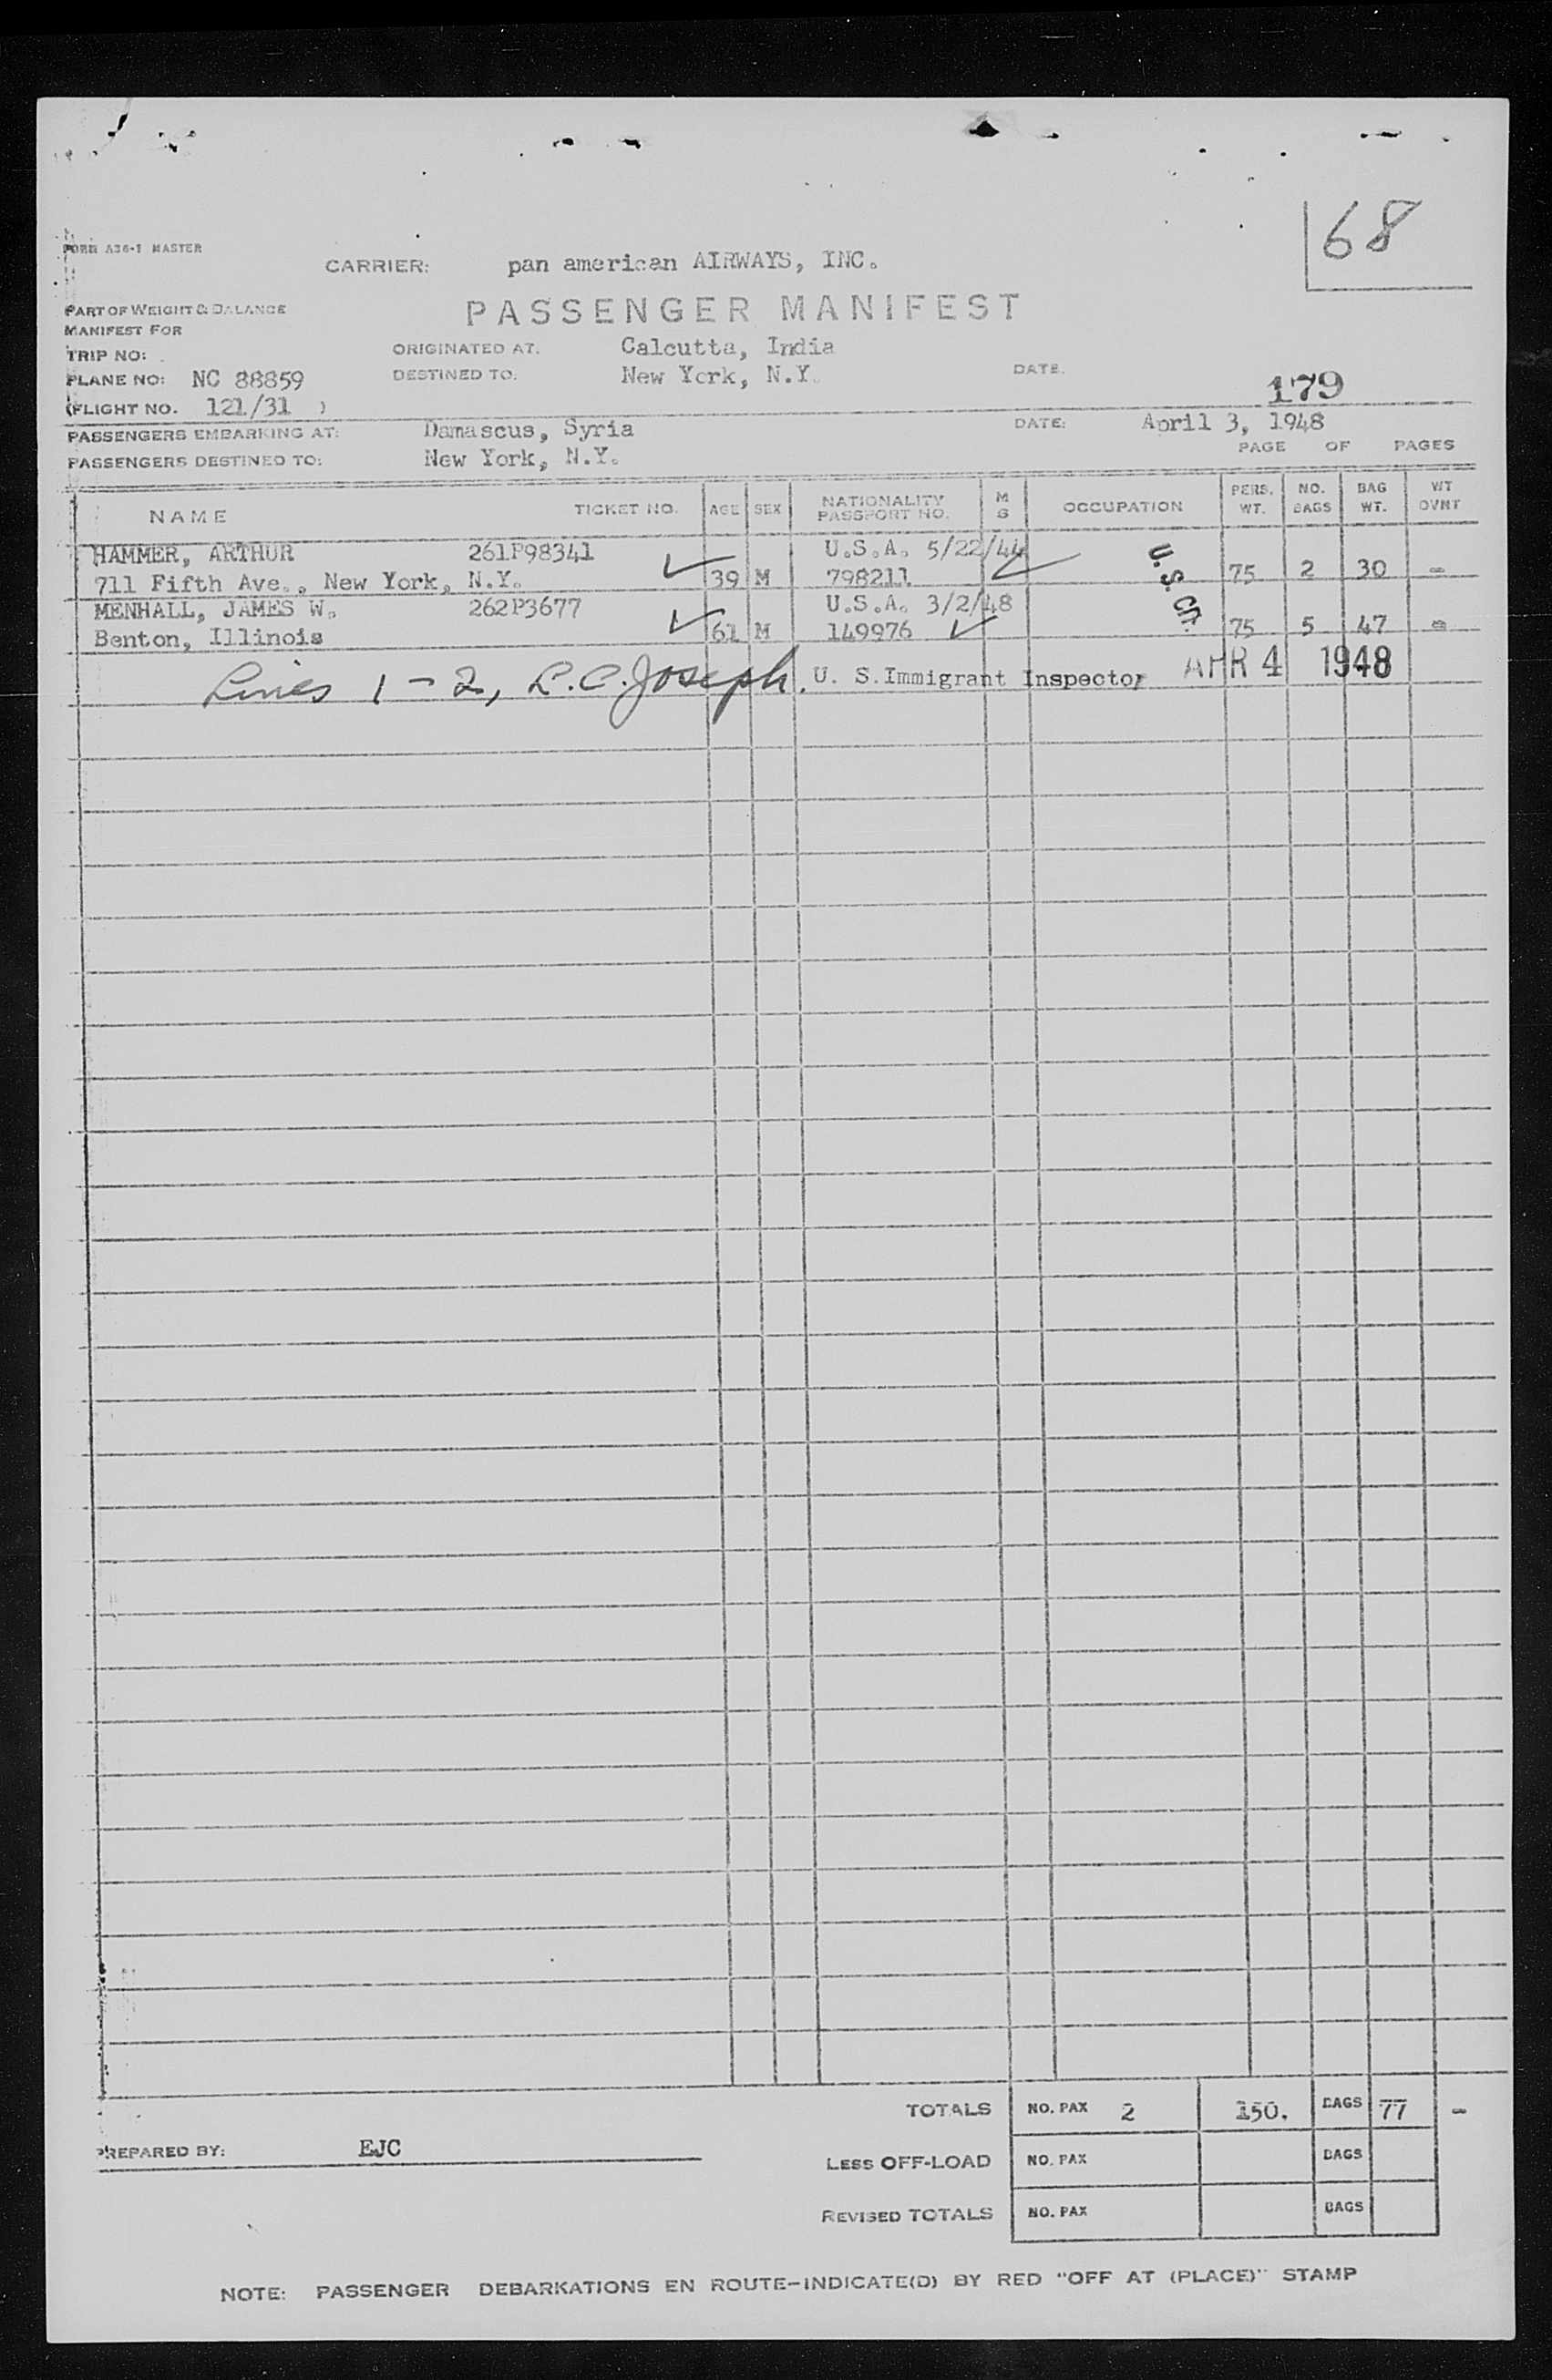 68
FORM A36-1 MASTER
CARRIER: pan american AIRWAYS, INC.
PART OF WEIGHT & BALANCE
MANIFEST FOR
PASSENGER MANIFEST
TRIP NO:
ORIGINATED AT. Calcutta, India
PLANE NO: NC 88859
DESTINED TO. New York, N.Y.
DATE.
179
(FLIGHT NO. 121/31 )
PASSENGERS EMBARKING AT: Damascus, Syria
DATE: April 3, 1948
PASSENGERS DESTINED TO: New York, N.Y.
PAGE OF PAGES
NAME TICKET NO. AGE SEX NATIONALITY PASSPORT NO. M S OCCUPATION PERS. WT. NO. BAGS BAG WT. WT OVNT
HAMMER, ARTHUR 261P98341 U.S.A. 5/22/44
711 Fifth Ave., New York, N.Y. 39 M 798211 U.S. Cit. 75 2 30 -
MENHALL, JAMES W. 262P3677 U.S.A. 3/2/48
Benton, Illinois 61 M 149976 75 5 47 -
Lines 1-2, L.C. Joseph. U. S. Immigrant Inspector APR 4 1948
TOTALS NO. PAX 2 150. BAGS 77 -
PREPARED BY: EJC
LESS OFF-LOAD NO. PAX BAGS
REVISED TOTALS NO. PAX BAGS
NOTE: PASSENGER DEBARKATIONS EN ROUTE-INDICATE(D) BY RED "OFF AT (PLACE)" STAMP